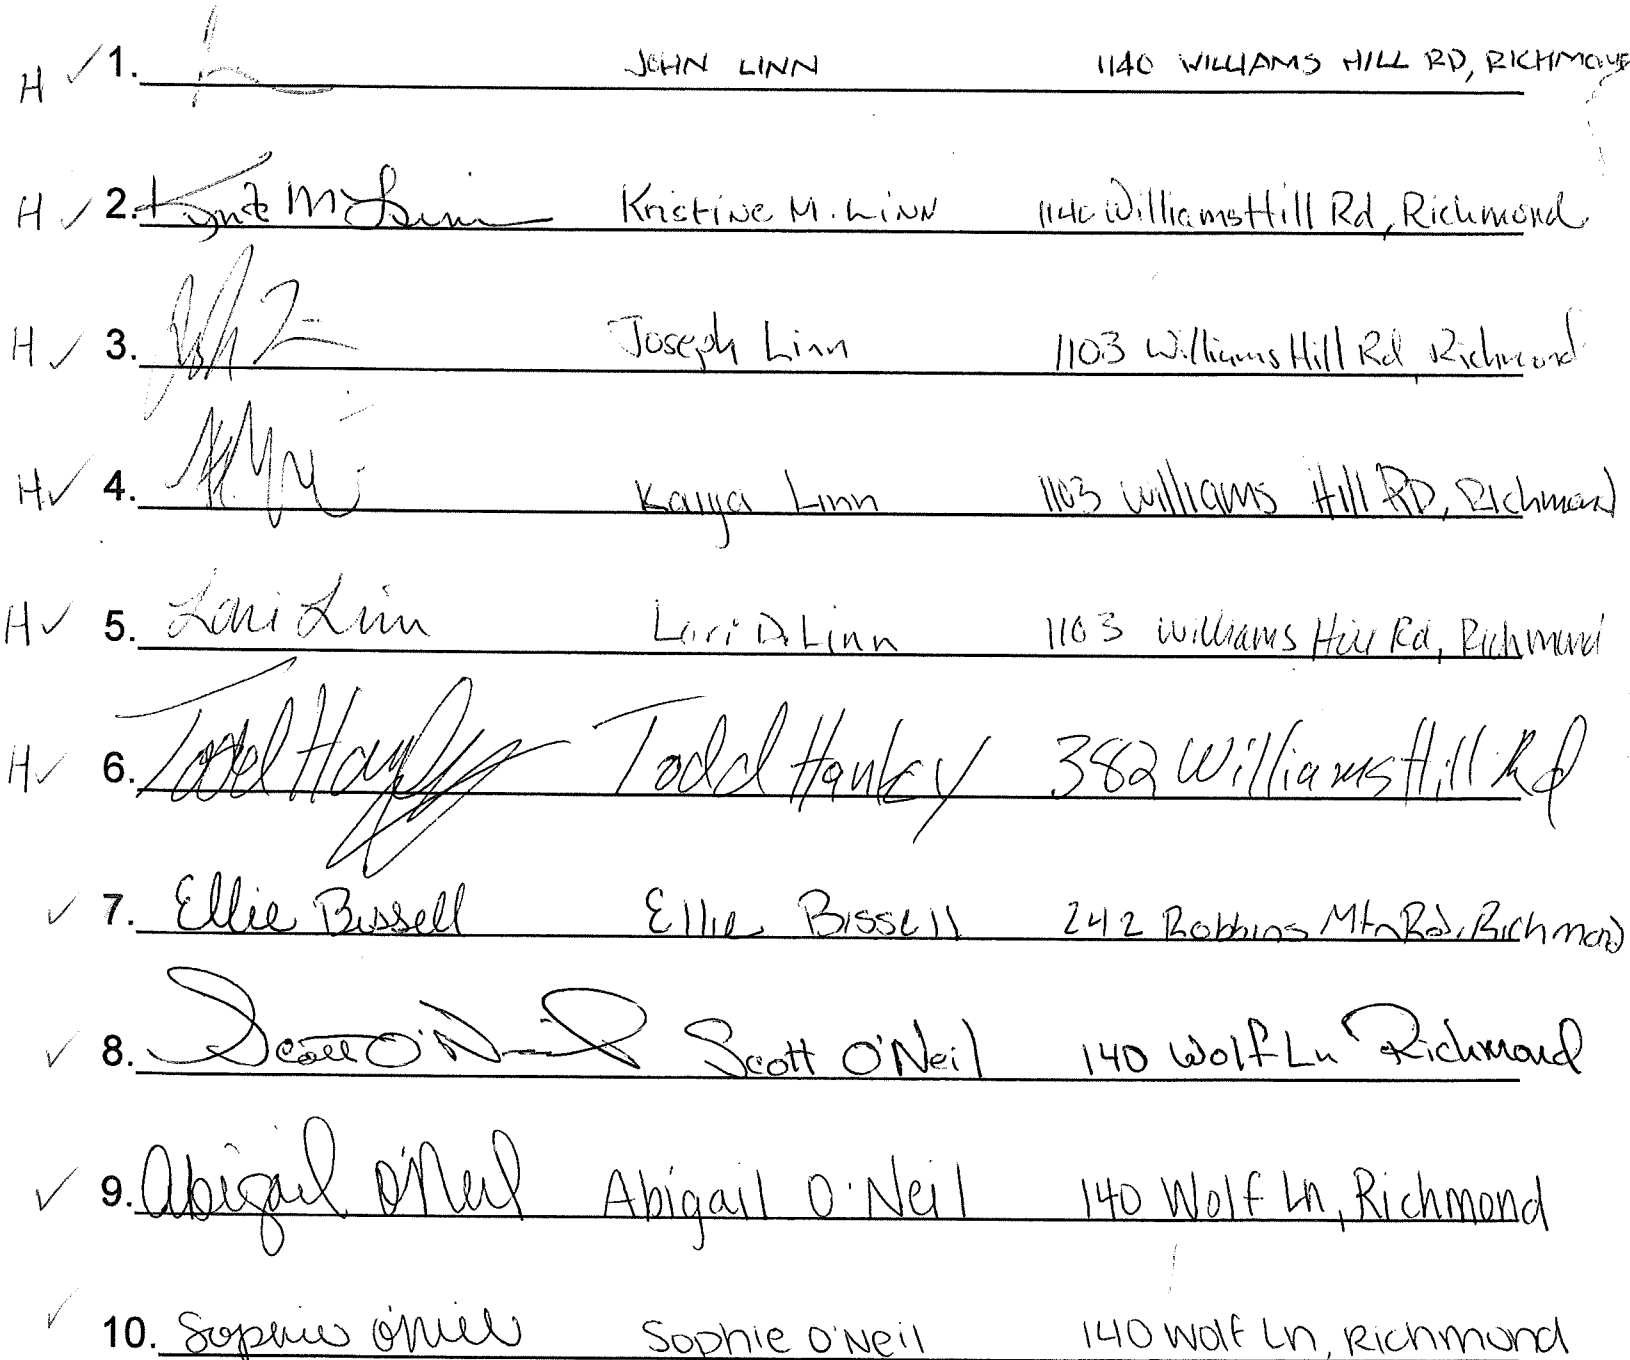 H ✓ 1. JOHN LINN 1140 WILLIAMS HILL RD, RICHMOND
H ✓ 2. Kristine M Linn Kristine M. Linn 1140 Williams Hill Rd, Richmond
H ✓ 3. Joseph Linn 1103 Williams Hill Rd, Richmond
H ✓ 4. Kaiya Linn 1103 Williams Hill RD, Richmond
H ✓ 5. Lori Linn Lori D. Linn 1103 Williams Hill Rd, Richmond
H ✓ 6. Todd Hanley Todd Hanley 382 Williams Hill Rd
✓ 7. Ellie Bissell Ellie Bissell 242 Robbins Mtn Rd, Richmond
✓ 8. Scott O'Neil Scott O'Neil 140 Wolf Ln Richmond
✓ 9. Abigail O'Neil Abigail O'Neil 140 Wolf Ln, Richmond
✓ 10. Sophie O'Neil Sophie O'Neil 140 Wolf Ln, Richmond